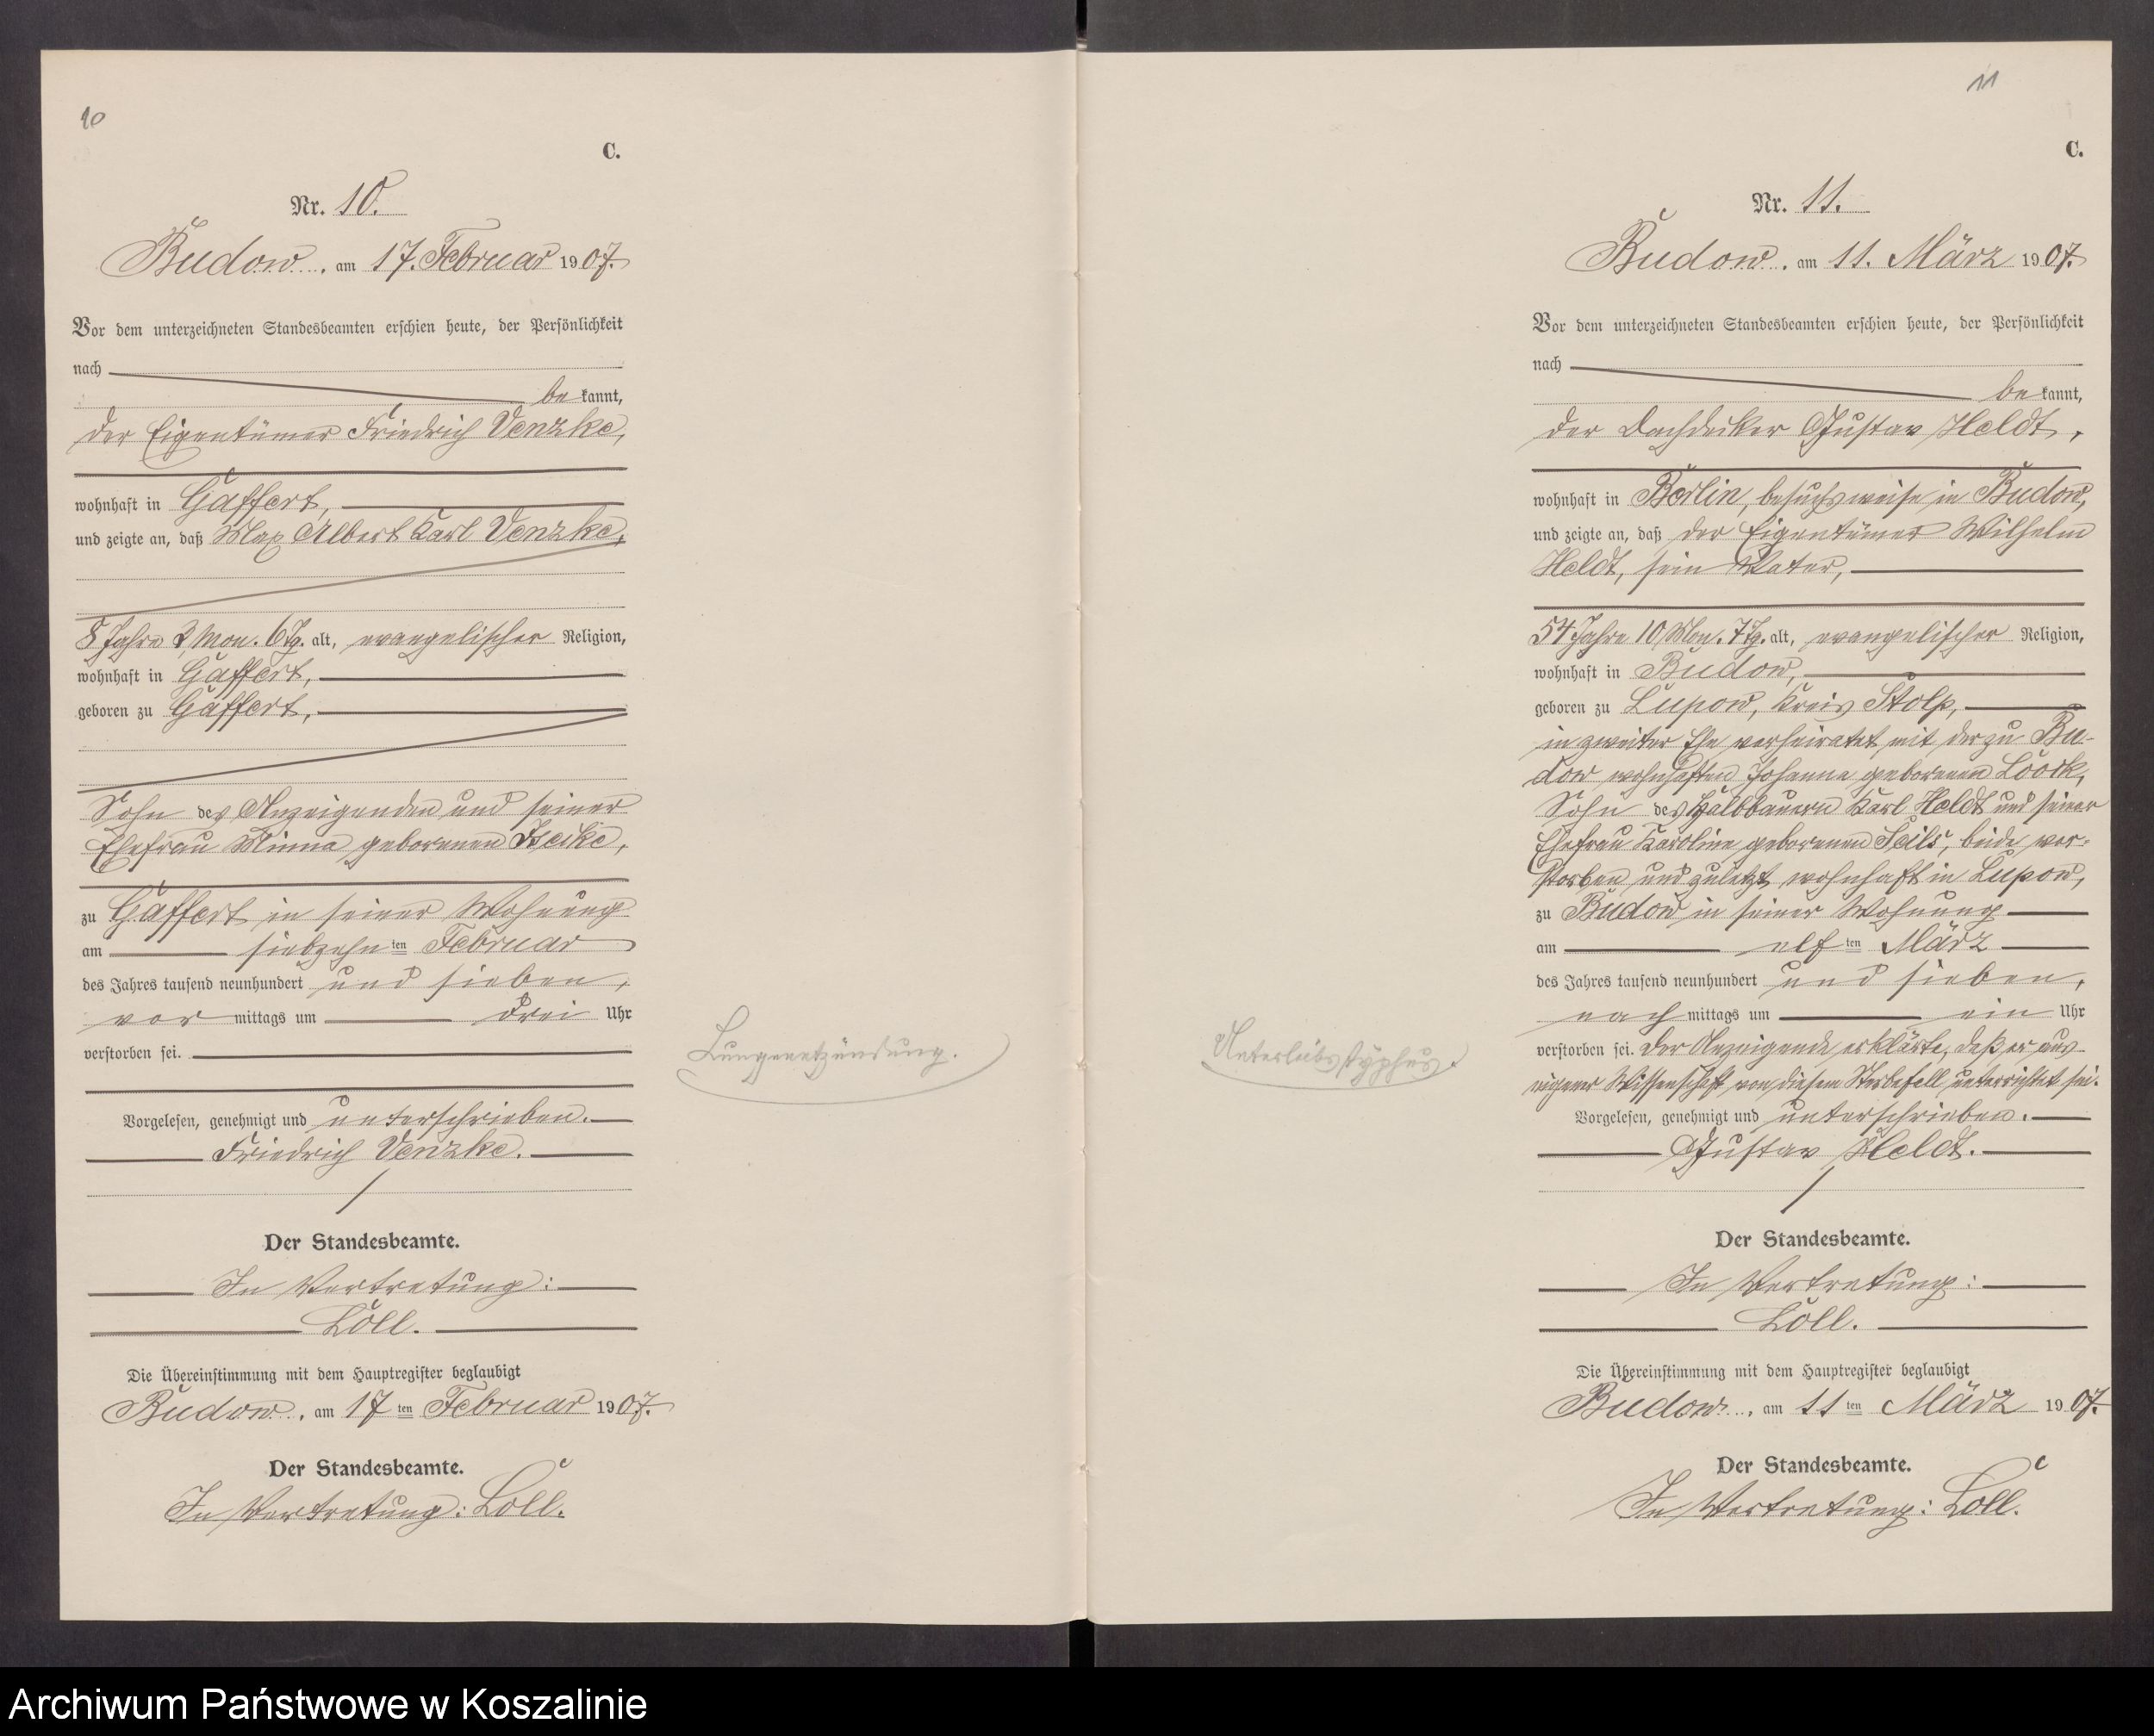 10
C.
Nr. 10.
Budow, am 17. Februar 1907.
Vor dem unterzeichneten Standesbeamten erschien heute, der Persönlichkeit
nach
bekannt,
der Eigentümer Friedrich Venzke,
wohnhaft in Gaffert,
und zeigte an, daß Max Albert Karl Venzke,
8 Jahre Mon. 6 Tg. alt, evangelischer Religion,
wohnhaft in Gaffert,
geboren zu Gaffert,
Sohn des Anzeigenden und seiner
Ehefrau Minna geborenen
zu Gaffert in seiner Wohnung
am siebzehnten Februar
des Jahres tausend neunhundert und sieben,
vormittags um drei Uhr
verstorben sei.
Vorgelesen, genehmigt und unterschrieben.
Friedrich Venzke.
Der Standesbeamte.
In Vertretung:
Loll.
Die Übereinstimmung mit dem Hauptregister beglaubigt
Budow, am 17ten Februar 1907.
Der Standesbeamte.
In Vertretung: Loll.
Lungenentzündung.
11
C.
Nr. 11.
Budow, am 11. März 1907.
Vor dem unterzeichneten Standesbeamten erschien heute, der Persönlichkeit
nach
bekannt,
der Dachdecker Gustav Heldt,
wohnhaft in Berlin, besuchsweise in Budow,
und zeigte an, daß der Eigentümer Wilhelm
Heldt, sein Vater,
54 Jahre 10 Mon. 7 Tg. alt, evangelischer Religion,
wohnhaft in Budow,
geboren zu Lupow, Kreis Stolp,
in zweiter Ehe verheiratet mit der zu Bu-
dow wohnhaften Johanna geborenen Loock,
Sohn des Halbbauern Karl Heldt und seiner
Ehefrau Karoline geborenen Seils, beide ver-
storben und zuletzt wohnhaft in Lupow,
zu Budow in seiner Wohnung
am elften März
des Jahres tausend neunhundert und sieben,
nachmittags um ein Uhr
verstorben sei. Der Anzeigende erklärte, daß er aus
eigener Wissenschaft von diesem Sterbefall unterrichtet sei.
Vorgelesen, genehmigt und unterschrieben.
Gustav Heldt.
Der Standesbeamte.
In Vertretung:
Loll.
Die Übereinstimmung mit dem Hauptregister beglaubigt
Budow, am 11ten März 1907.
Der Standesbeamte.
In Vertretung: Loll.
Unterleibstyphus.
Archiwum Państwowe w Koszalinie